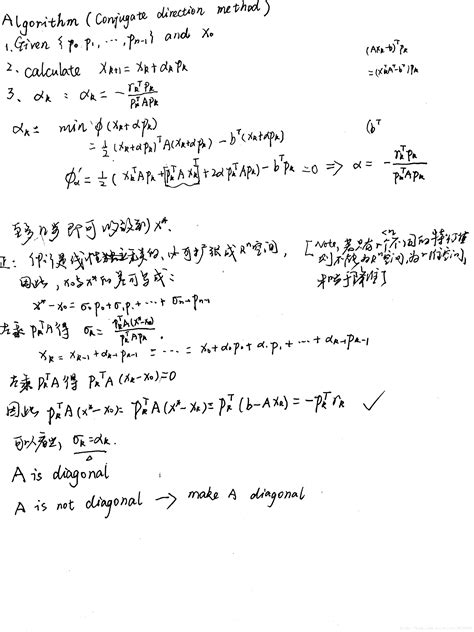 Algorithm (Conjugate direction method)
1. Given {p₀, p₁, ⋯, pₙ₋₁} and x₀
2. calculate xₖ₊₁ = xₖ + αₖpₖ
3. αₖ : αₖ = - rₖᵀpₖ / pₖᵀApₖ
(Axₖ-b)ᵀpₖ
= (xₖᵀAᵀ-bᵀ)pₖ
αₖ = min ϕ(xₖ+αpₖ)
(bᵀ
= 1/2 (xₖ+αpₖ)ᵀA(xₖ+αpₖ) - bᵀ(xₖ+αpₖ)
ϕ'α = 1/2 (xₖᵀApₖ + pₖᵀAxₖ + 2αpₖᵀApₖ) - bᵀpₖ = 0 ⇒ α = - rₖᵀpₖ / pₖᵀApₖ
至多n步即可收敛到x*.
证: 们是线性独立无关的, 可扩张成Rⁿ空间,
[Note, 若只有r个不同的特征值
因此, x₀与x*的差可写成:
x*-x₀ = σ₀p₀ + σ₁p₁ + ⋯ + σₙ₋₁pₙ₋₁
左乘 pₖᵀA 得 σₖ = pₖᵀA(x*-x₀) / pₖᵀApₖ.
xₖ = xₖ₋₁ + αₖ₋₁pₖ₋₁ = ⋯ = x₀ + α₀p₀ + α₁p₁ + ⋯ + αₖ₋₁pₖ₋₁
左乘 pₖᵀA 得 pₖᵀA(xₖ-x₀)=0
因此 pₖᵀA(x*-x₀) = pₖᵀA(x*-xₖ) = pₖᵀ(b-Axₖ) = -pₖᵀrₖ ✓
可以看出, σₖ = αₖ.
A is diagonal
A is not diagonal → make A diagonal